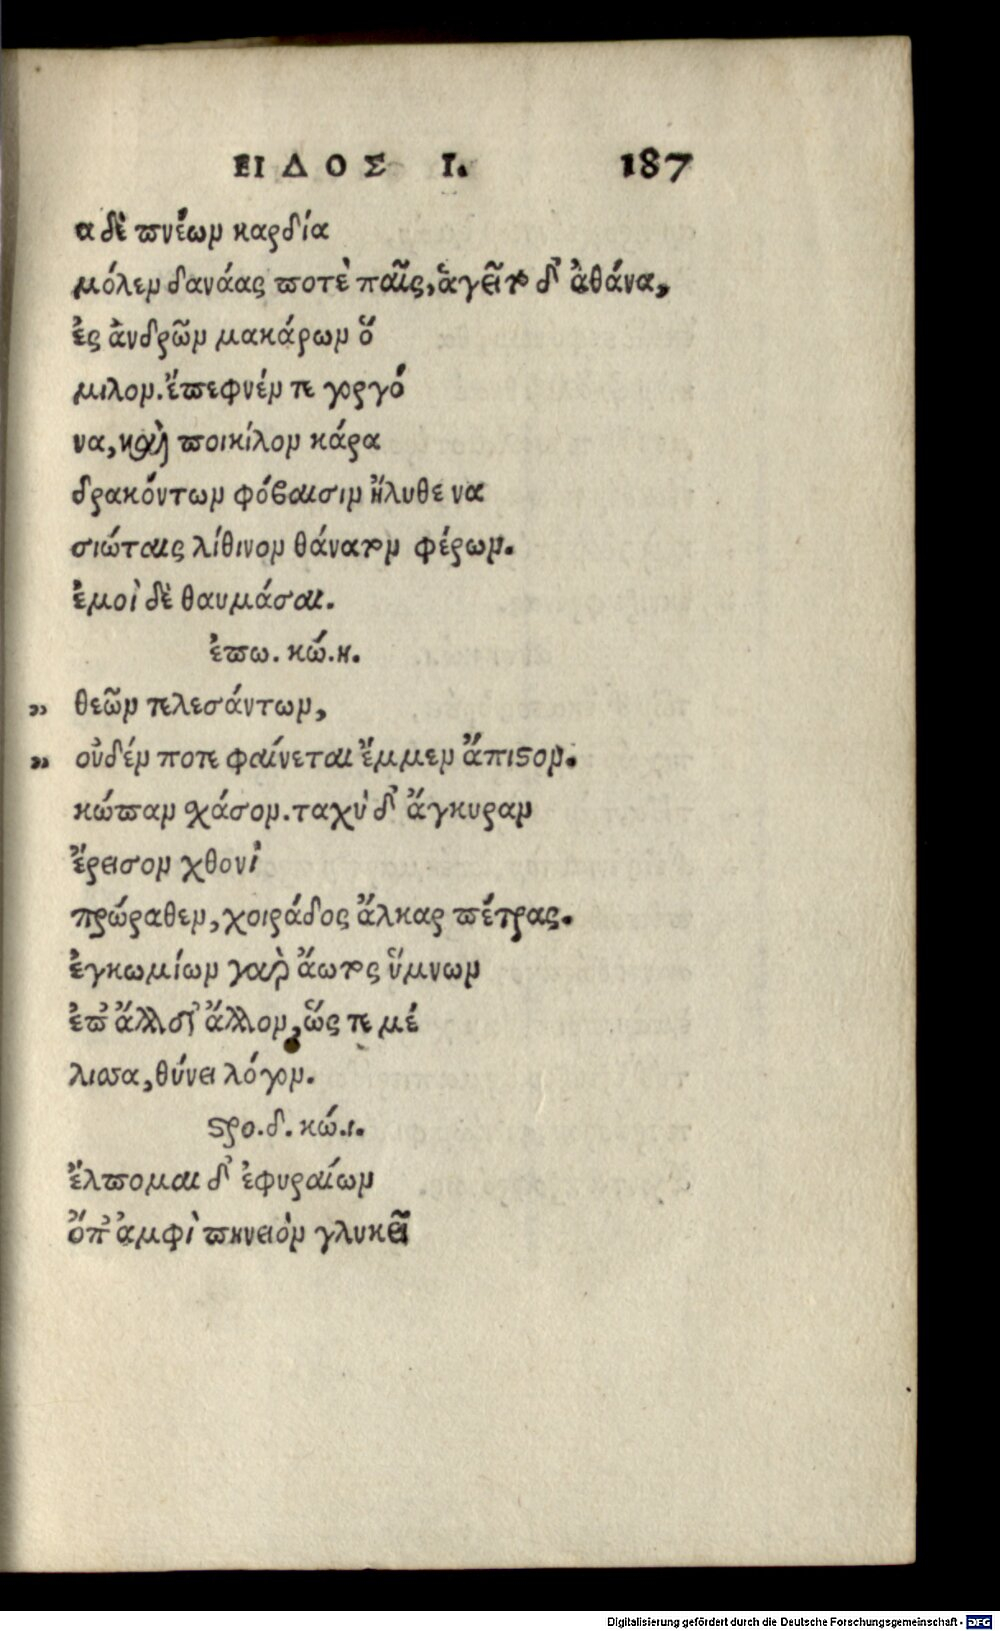 ΕΙΔΟΣ Ι. 187
α δὲ πνέων καρδία
μόλεν δανάας ποτὲ παῖς, ἁγεῖτο δ' ἀθάνα,
ἐς ἀνδρῶν μακάρων ὅ
μιλον. ἔπεφνέν τε γοργό
να, καὶ ποικίλον κάρα
δρακόντων φόβαισιν ἤλυθε να
σιώταις λίθινον θάνατον φέρων.
ἐμοὶ δὲ θαυμάσαι.
ἐπω. κώ. η.
„ θεῶν τελεσάντων,
„ οὐδέν ποτε φαίνεται ἔμμεν ἄπιστον.
κώπαν χάσον. ταχὺ δ' ἄγκυραν
ἔρεισον χθονὶ
πρώραθεν, χοιράδος ἄλκαρ πέτρας.
ἐγκωμίων γὰρ ἄωτος ὕμνων
ἐπ' ἄλλοτ' ἄλλον, ὥς τε μέ
λισσα, θύνει λόγον.
στρο. δ. κώ. ι.
ἔλπομαι δ' ἐφυραίων
ὄπ' ἀμφὶ πηνειὸν γλυκεῖ
Digitalisierung gefördert durch die Deutsche Forschungsgemeinschaft - DFG